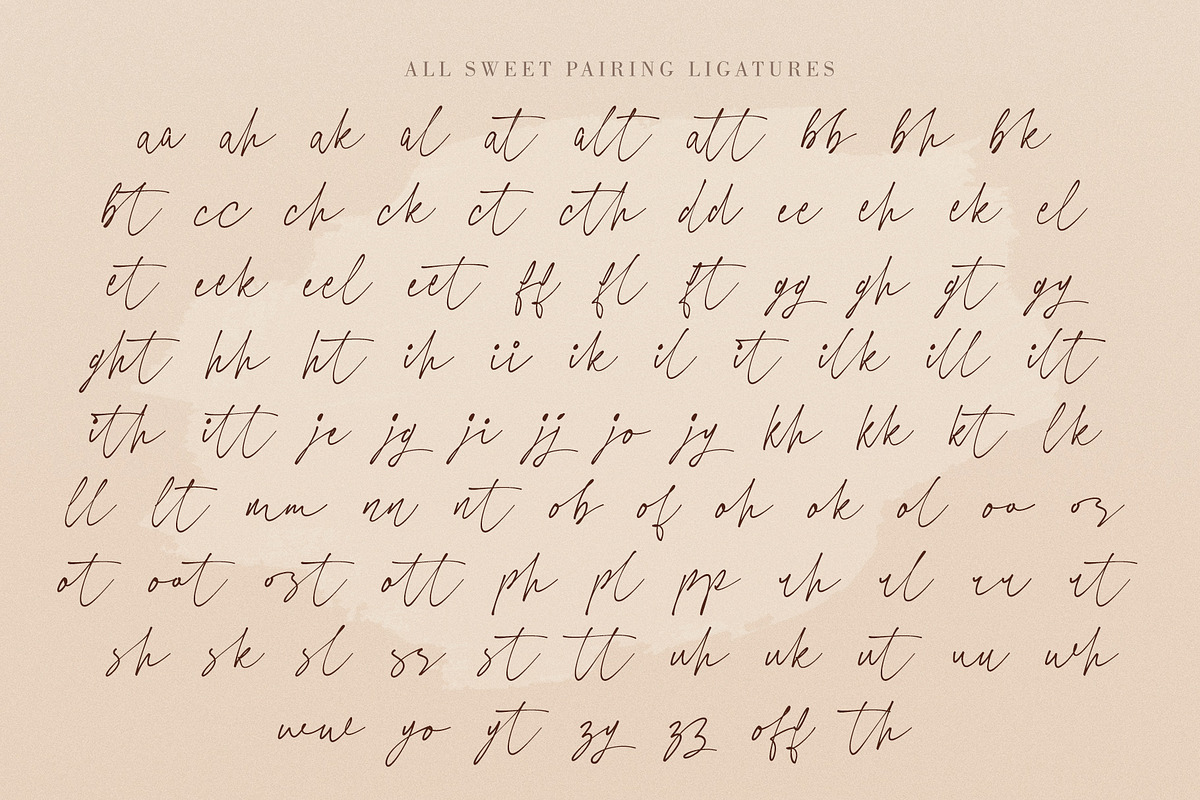 ALL SWEET PAIRING LIGATURES
aa ah ak al at alt att bb bh bk
bt cc ch ck ct cth dd ee eh ek el
et eek eel eet ff fl ft gg gh gt gy
ght hh ht ih ii ik il it ilk ill ilt
ith itt je jg ji jj jo jy kh kk kt lk
ll lt mm nn nt ob of oh ok ol oo os
ot oot ost ott ph pl pp rh rl rr rt
sh sk sl ss st tt uh uk ut uu wh
ww yo yt zy zz off th